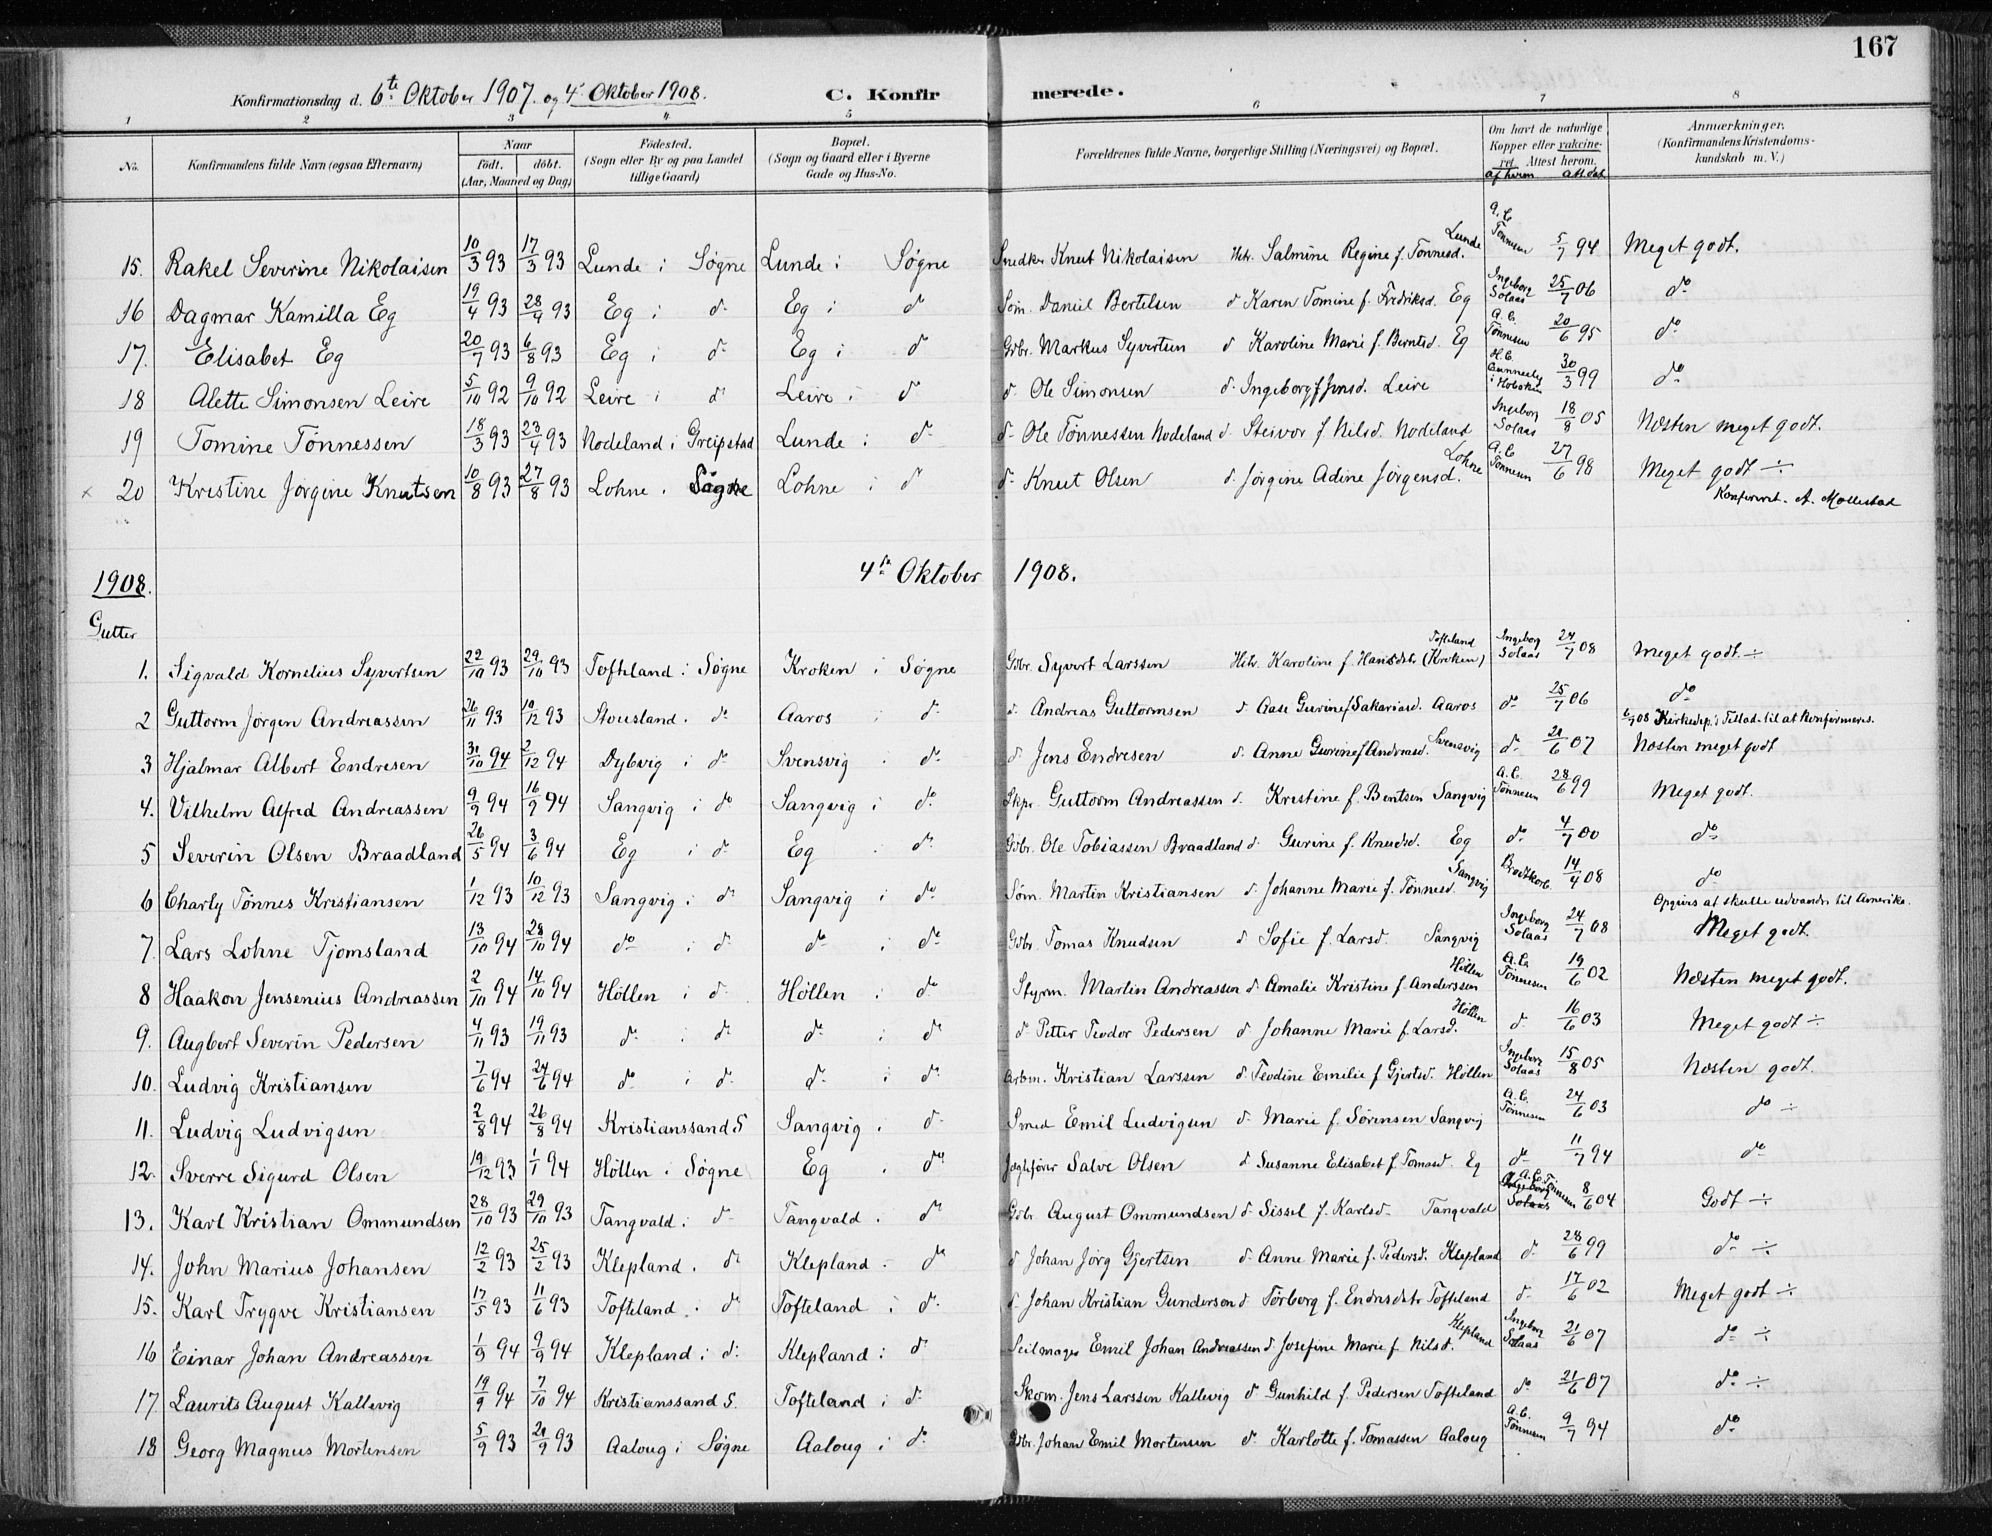 167
Konfirmationsdag d. 6te Oktober 1907. og 4 Oktober 1908. C. Konfirmerede.
1 2 3 4 5 6 7 8
No. Konfirmandens fulde Navn (ogsaa Efternavn) Naar født. døbt. (Aar, Maaned og Dag) Fødested. (Sogn eller By og paa Landet tillige Gaard) Bopæl. (Sogn og Gaard eller i Byerne Gade og Hus-No. Forældrenes fulde Navne, borgerlige Stilling (Næringsvei) og Bopæl. Om havt de naturlige Kopper eller vakcineret. Attest herom. af hvem att. dat. Anmærkninger. (Konfirmandens Kristendomskundskab m. V.)
15. Rakel Severine Nikolaisen 10/3 93 17/3 93 Lunde i Søgne Lunde i Søgne Snedker Knut Nikolaisen Htr. Salmine Regine f. Tønnesd. Lunde A. C. Tønnesen 5/7 94 Meget godt.
16 Dagmar Kamilla Eg 19/4 93 28/4 93 Eg i do Eg i do Søm. Daniel Bertelsen do Karen Tomine f. Fredriksd. Eg Ingeborg Solaas 25/7 06 do
17. Elisabet Eg 20/7 93 6/8 93 Eg i do Eg i do Gbr. Markus Syvertsen do Karoline Marie f. Berntsd. Eg A. C. Tønnesen 20/6 95 do
18 Alette Simonsen Leire 5/10 92 9/10 92 Leire i do Leire i do do Ole Simonsen do Ingeborg f Jensd. Leire H. C. i Hoboken 30/3 99 do
19 Tomine Tønnessen 18/3 93 23/4 93 Nodeland i Greipstad Lunde i do do Ole Tønnessen Nodeland do Steivor f Nilsd. Nodeland Ingeborg Solaas 18/8 05 Næsten meget godt.
x 20 Kristine Jørgine Knutsen 10/8 93 27/8 93 Lohne i Søgne Lohne i do do Knut Olsen do Jørgine Adine Jørgensd. Lohne A. C. Tønnesen 27/6 98 Meget godt ÷
Konfereret. A. Mollestad
4de Oktober 1908.
1908.
Gutter
1. Sigvald Kornelius Syvertsen 22/10 93 29/10 93 Tofteland i Søgne Kroken i Søgne Gbr. Syvert Larssen Htr. Karoline f. Hansdtr. Tofteland (Kroken) Ingeborg Solaas 24/7 08 Meget godt. ÷
2 Guttorm Jørgen Andreassen 26/11 93 10/12 93 Stousland i do Aaros i do do Andreas Guttormsen do Aase Gurine f Sakariasd. Aaros do 25/7 06 do
08 Kirkedep.s Tillad. til at konfirmeres.
3 Hjalmar Albert Endresen 31/10 94 2/12 94 Dybvig i do Svensvig i do do Jens Endresen do Anne Gurine f Andreasd. Svensvig do 21/6 07 Næsten meget godt
4. Vilhelm Alfred Andreassen 9/9 94 16/9 94 Sangvig i do Sangvig i do Skpr. Guttorm Andreassen do Kristine f. Bentsen Sangvig A. C. Tønnesen 28/6 99 Meget godt.
5 Severin Olsen Braadland 26/5 94 3/6 94 Eg i do Eg do Gbr. Ole Tobiassen Braadland do Gurine f. Knudsd. Eg do 4/7 00 do
6 Charly Tønnes Kristiansen 1/12 93 10/12 93 Sangvig i do Sangvig i do Søm. Martin Kristiansen do Johanne Marie f. Tønnesd. Sangvig Brodtkorb. 14/4 08 do
Opgives at skulle udvandre til Amerika.
7. Lars Lohne Tjomsland 13/10 94 28/10 94 do i do do i do Gbr. Tomas Knudsen do Sofie f. Larsd. Sangvig Ingeborg Solaas 24/7 08 Meget godt.
8 Haakon Jensenius Andreassen 2/10 94 14/10 94 Høllen i do Høllen i do Styrm. Martin Andreassen do Amalie Kristine f. Anderssen Høllen A. C. Tønnesen 19/6 02 Næsten meget godt.
9. Augbert Severin Pedersen 4/11 93 19/11 93 do i do do i do do Petter Teodor Pedersen do Johanne Marie f. Larsd. Høllen do 16/6 03 Meget godt ÷
10. Ludvig Kristiansen 7/6 94 24/6 94 do i do do i do Arbm. Kristian Larssen do Teodine Emilie f Gjertsd. Høllen Ingeborg Solaas 15/8 05 Næsten godt.
11. Ludvig Ludvigsen 2/8 94 26/8 94 Kristianssand S Sangvig i do Smed Emil Ludvigsen do Marie f. Sørensen Sangvig A. C. Tønnesen 24/6 03 do ÷
12. Sverre Sigurd Olsen 19/12 93 1/1 94 Høllen i Søgne Eg i do Jagtfører Salve Olsen do Susanne Elisabet f. Tomasd. Eg do 11/7 94 do
13. Karl Kristian Ommundsen 28/10 93 29/10 93 Tangvald i do Tangvald i do Gbr. August Ommundsen do Sissel f. Karlsd. Tangvald A. C. Tønnesen 8/6 04 Godt ÷
14. John Marius Johansen 12/2 93 25/2 93 Klepland i do Klepland i do do Johan Jørg Gjertsen do Anne Marie f. Pedersd. Klepland do 28/6 99 do ÷
15. Karl Trygve Kristiansen 17/5 93 11/6 93 Tofteland i do Tofteland i do do Johan Kristian Gundersen do Tørborg f. Endresdtr Tofteland do 17/6 02 Meget godt ÷
16 Einar Johan Andreassen 1/9 94 9/9 94 Klepland i do Klepland i do Seilmager Emil Johan Andreassen do Josefine Marie f. Nilsd. Klepland Ingeborg Solaas 21/6 07 do ÷
17. Laurits August Kallevig 19/9 94 7/10 94 Kristianssand S. Tofteland i do Skom. Jens Larssen Kallevig do Gunhild f. Pedersen Tofteland do 21/6 07 do ÷
18 Georg Magnus Mortensen 5/9 93 21/9 93 Aaloug i Søgne Aaloug i do Gbr. Johan Emil Mortensen do Karlotte f. Tomassen Aaloug A. C. Tønnesen 9/7 94 do